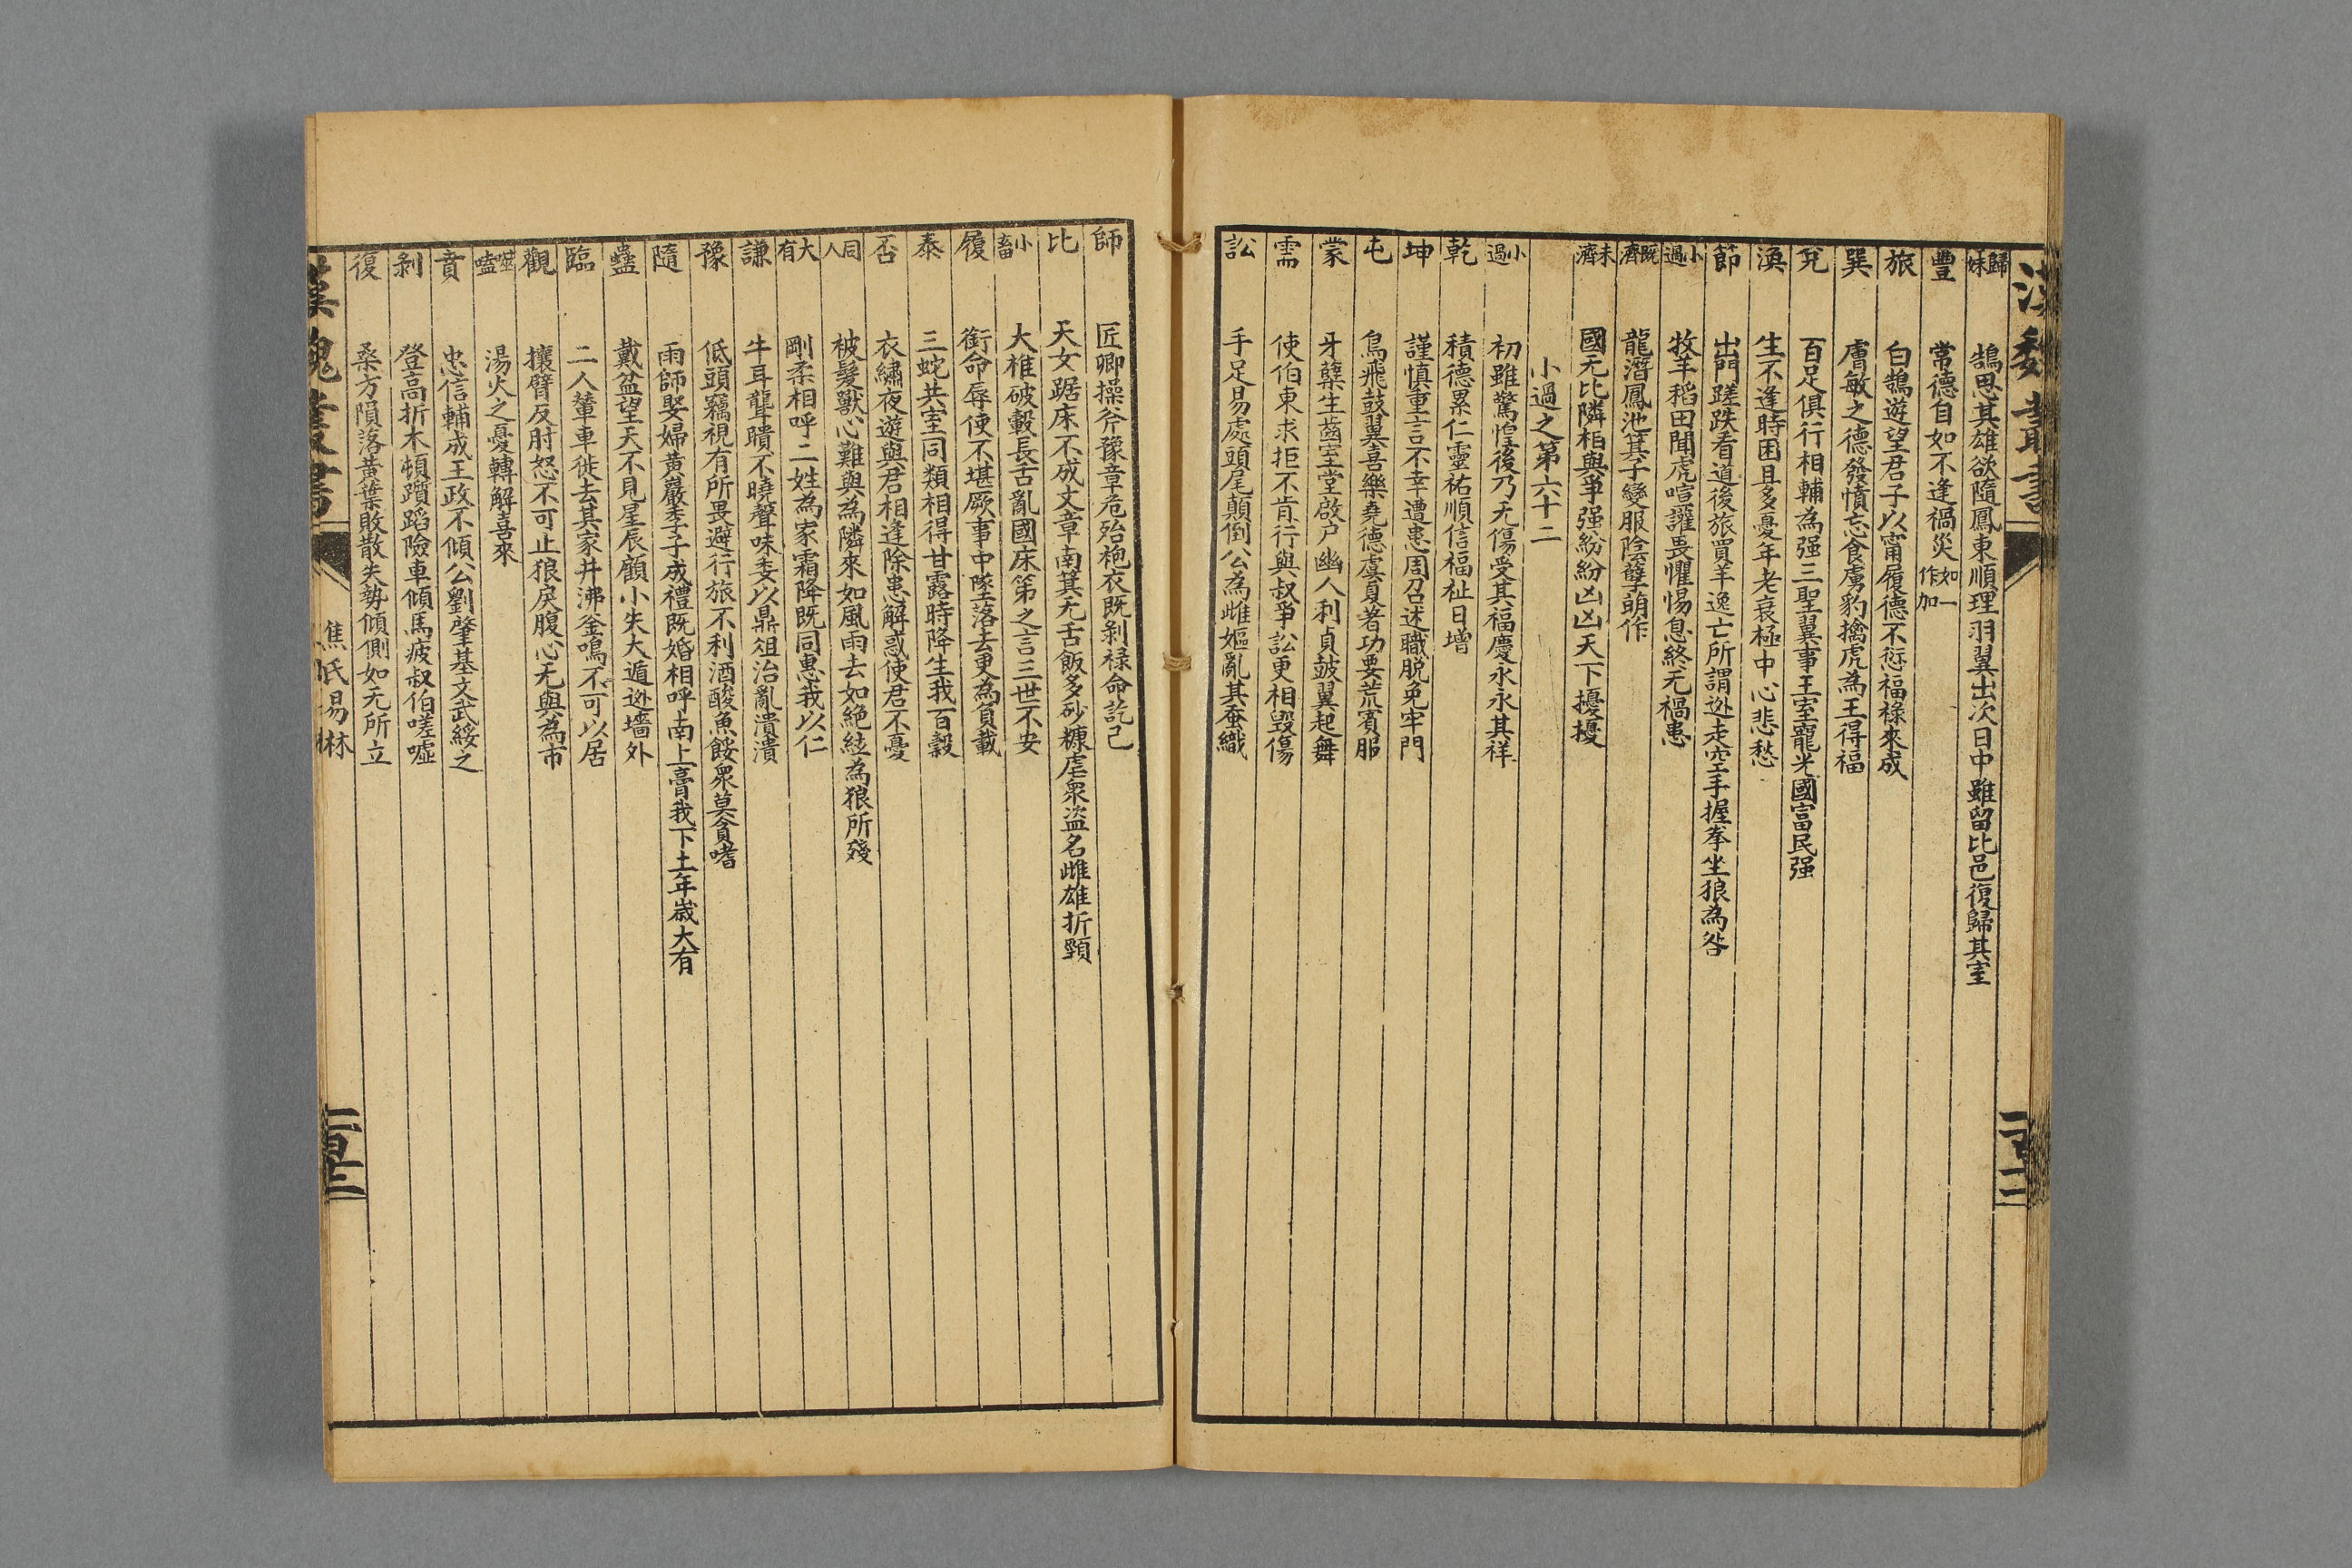 漢魏叢書
歸妹 鵠思其雄欲隨鳳東順理羽翼出次日中雖留比邑復歸其室
豐 常德自如不逢禍災如一作加
旅 白鵠遊望君子以甯履德不愆福祿來成
巽 膚敏之德發憤忘食虜豹擒虎為王得福
兌 百足俱行相輔為强三聖翼事王室寵光國富民强
渙 生不逢時困且多憂年老衰極中心悲愁
節 出門蹉跌看道後旅買羊逸亡所謂逃走空手握拳坐狼為咎
小過 牧羊稻田聞虎喧讙畏懼惕息終无禍患
既濟 龍潛鳳池箕子變服陰孽萌作
未濟 國无比隣相與爭强紛紛凶凶天下擾擾
小過之第六十二
小過 初雖驚惶後乃无傷受其福慶永永其祥
乾 積德累仁靈祐順信福祉日增
坤 謹慎重言不幸遭患周召述職脫免牢門
屯 鳥飛鼓翼喜樂堯德虞夏著功要荒賓服
蒙 牙蘖生齒室堂啟戶幽人利貞鼓翼起舞
需 使伯東求拒不肯行與叔爭訟更相毀傷
訟 手足易處頭尾顛倒公為雌嫗亂其蚕織
師 匠卿操斧豫章危殆袍衣既剝祿命訖已
比 天女踞床不成文章南箕无舌飯多砂糠虐衆盜名雌雄折頸
小畜 大椎破轂長舌亂國床笫之言三世不安
履 銜命辱使不堪厥事中墜落去更為負載
泰 三蛇共室同類相得甘露時降生我百穀
否 衣繡夜遊與君相逢除患解惑使君不憂
同人 被髮獸心難與為隣來如風雨去如絕絃為狼所殘
大有 剛柔相呼二姓為家霜降既同惠我以仁
謙 牛耳聾聵不曉聲味委以鼎俎治亂潰潰
豫 低頭竊視有所畏避行旅不利酒酸魚餒衆莫貪嗜
隨 雨師娶婦黃巖季子成禮既婚相呼南上膏我下土年歲大有
蠱 戴盆望天不見星辰顧小失大遁逃墻外
臨 二人輦車徙去其家井沸釜鳴不可以居
觀 攘臂反肘怒不可止狼戾腹心无與為市
噬嗑 湯火之憂轉解喜來
賁 忠信輔成王政不傾公劉肇基文武綏之
剝 登高折木頓躓蹈險車傾馬疲叔伯嗟噓
復 桑方隕落黃葉敗散失勢傾側如无所立
漢魏叢書 焦氏易林